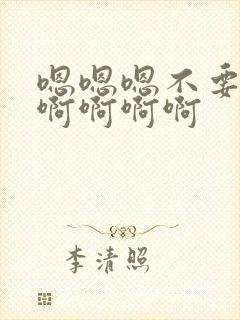 嗯嗯嗯不要
啊啊啊啊
李清照